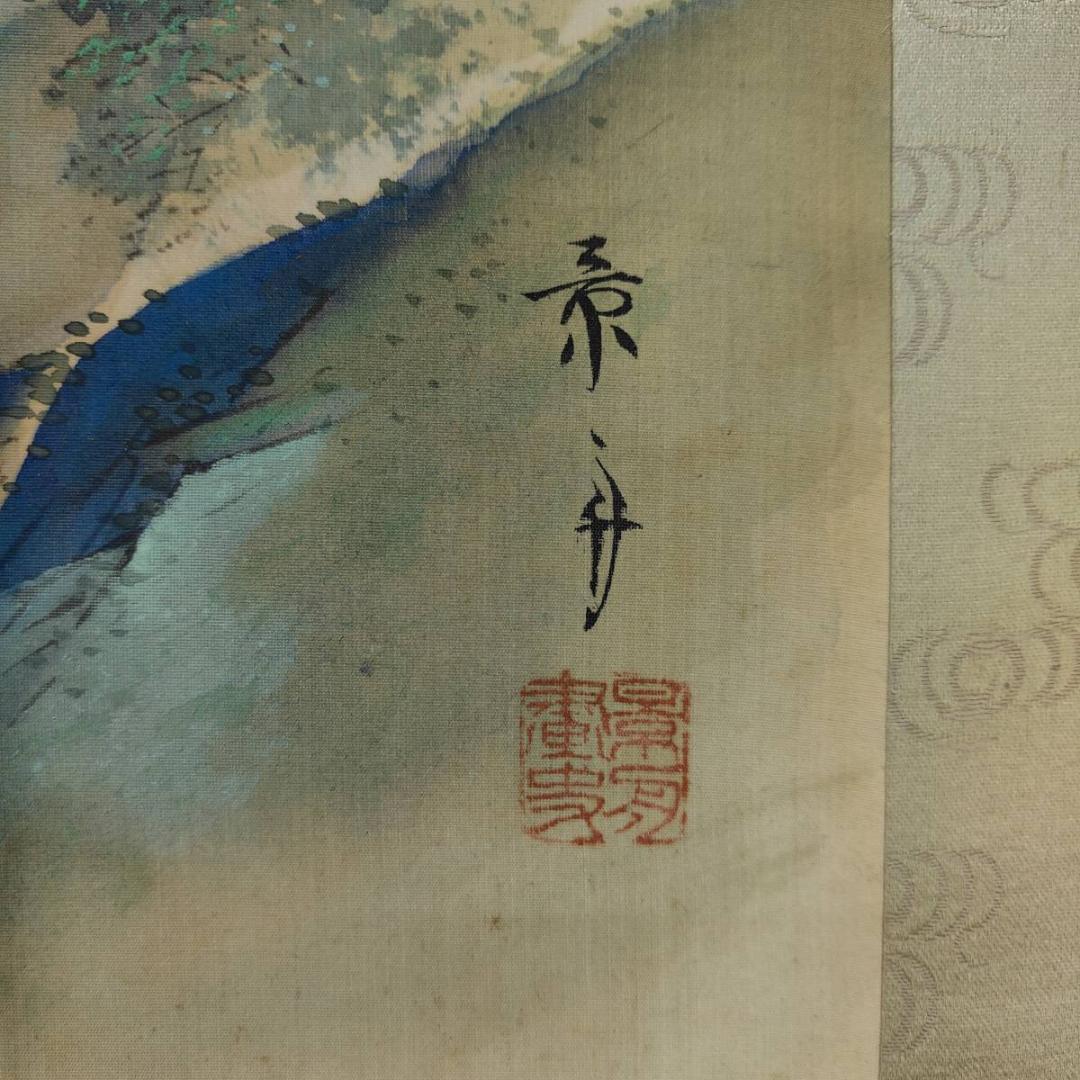 景舟
景舟
畫史